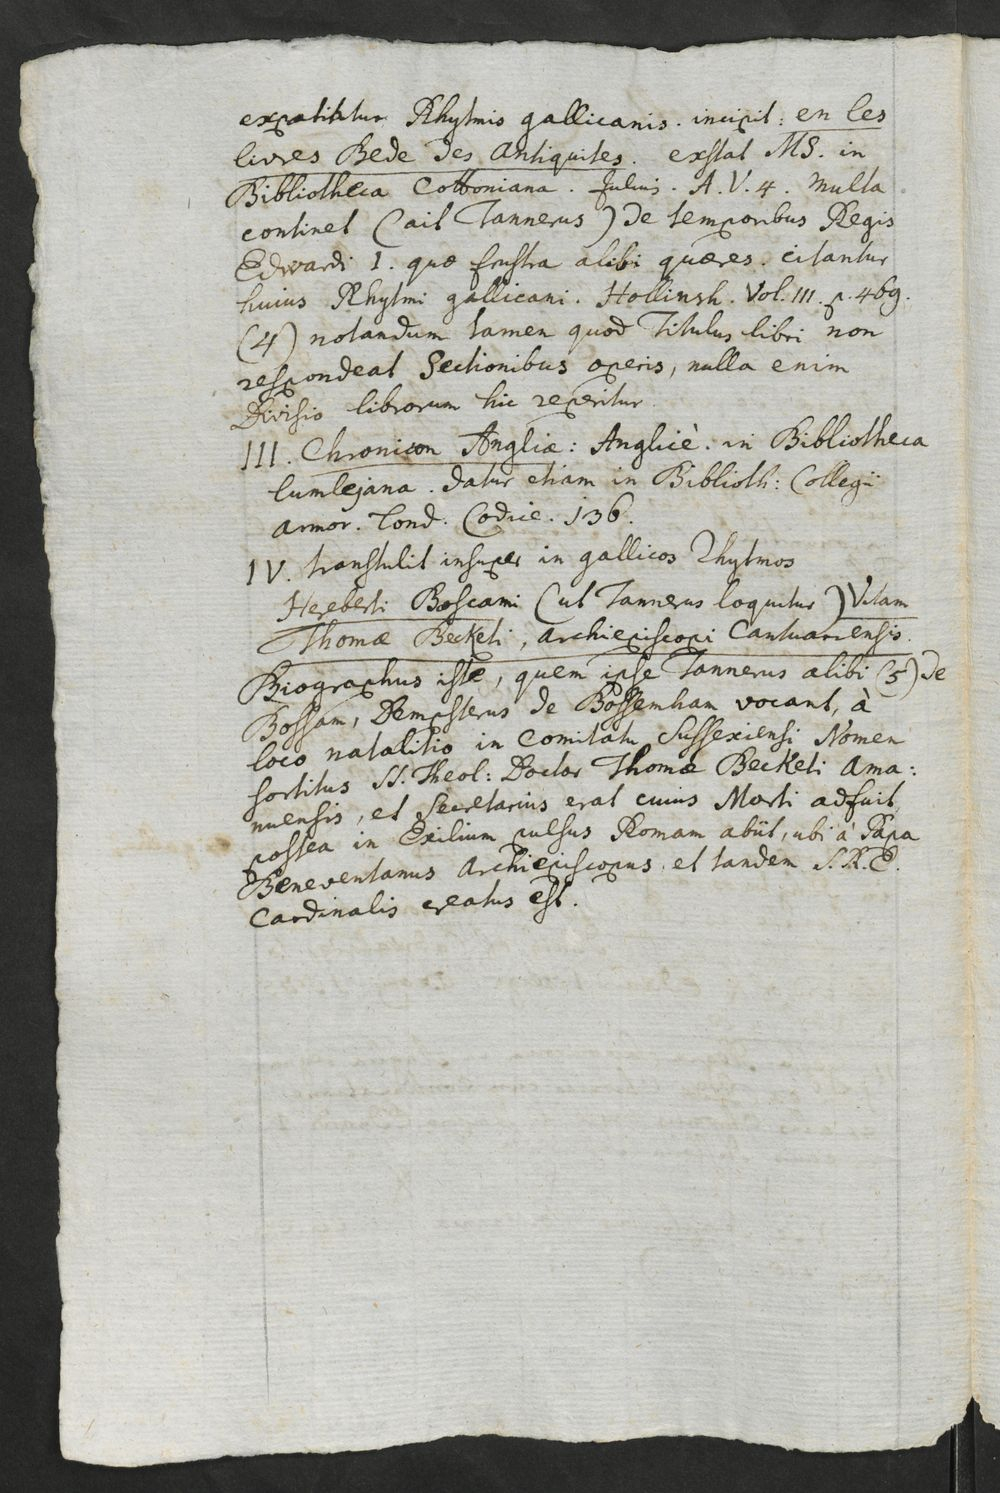 expatitatur Rhytmis gallicanis. incipit: en les
livres Bede des Antiquites. exstat MS. in
Bibliotheca Cottoniana. Julius. A. V. 4. multa
continet (ait Tannerus) de temporibus Regis
Edwardi I. quæ frustra alibi quæres. citantur
huius Rhytmi gallicani. Hollinsh. Vol. III. p. 469.
(4) notandum tamen quod Titulus libri non
respondeat Sectionibus operis, nulla enim
Divisio librorum hic reperitur.
III. Chronicon Angliæ: Anglicè. in Bibliotheca
Lumlejana. datur etiam in Biblioth: Collegii
Armor. Lond. Codice. 136.
IV. transtulit insuper in gallicos Rhytmos
Hereberti Boscami (ut Tannerus loquitur) Vitam
Thomæ Becketi, Archiepiscopi Cantuariensis.
Biographus iste, quem ipse Tannerus alibi (5) de
Bossam, Dempsterus de Bossemham vocant, à
loco natalitio in Comitatu Sussexiensi Nomen
sortitus SS. Theol: Doctor Thomæ Becketi Ama:
nuensis, et Secretarius erat cuius Morti adfuit,
postea in Exilium pulsus Romam abiit, ubi à Papa
Beneventanus Archiepiscopus, et tandem S. R. E.
Cardinalis creatus est.